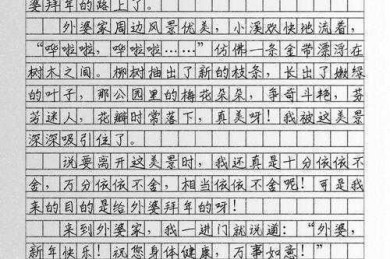 婆拜年的路上了。
外婆家周边风景优美，小溪欢快地流着，
“哗啦啦，哗啦啦……”仿佛一条金带漂浮在
树木之间。柳树抽出了新的枝条，长出了嫩绿
的叶子，那公园里的梅花朵朵，争奇斗艳，芬
芳迷人，花瓣时常落下，真美呀！我被这美景
深深吸引住了。
说要离开这美景时，我还真是十分依依不
舍，万分依依不舍，相当依依不舍呢！可是我
来的目的是给外婆拜年的呀！
来到外婆家，我一进门就说道：“外婆，
新年快乐！祝您身体健康，万事如意！”